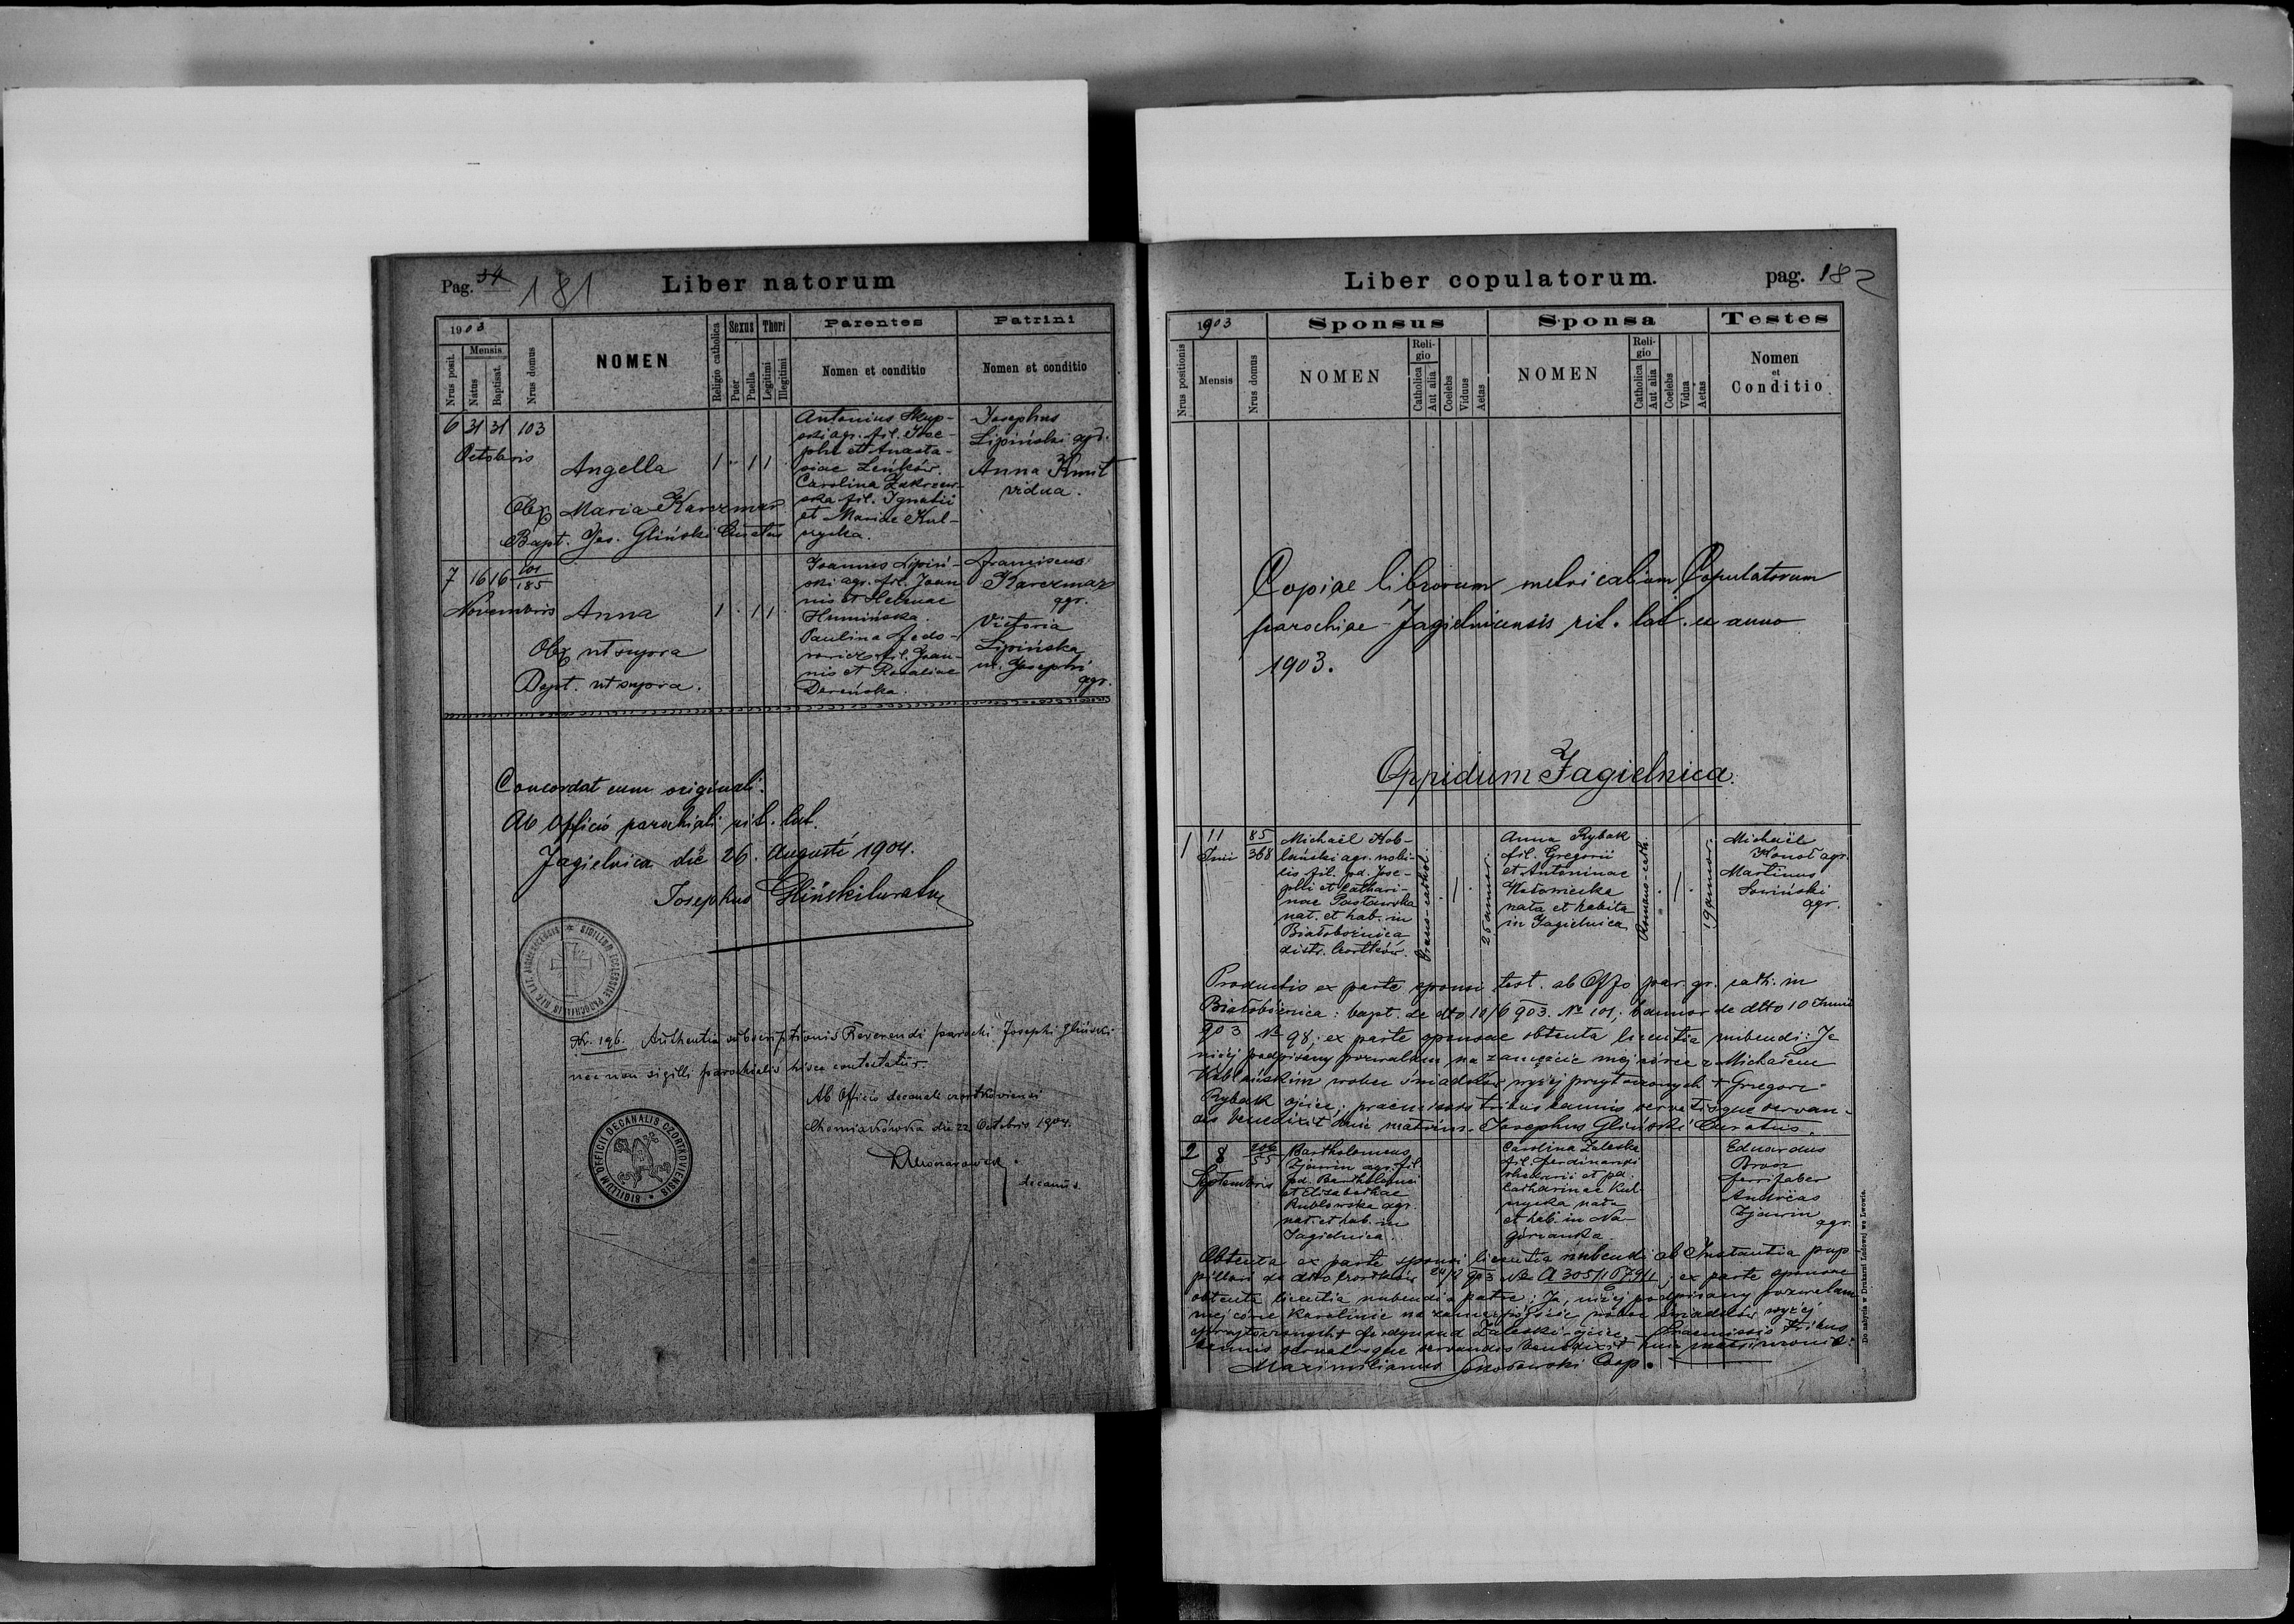 Pag. 54 181 Liber natorum
1903
Nrus posit.
Mensis
Natus
Baptisat.
Nrus domus
NOMEN
Religio catholica
Sexus
Puer
Puella
Thori
Legitimi
Illegitimi
Parentes
Nomen et conditio
Patrini
Nomen et conditio
6 31 31 103
Octobris
Angella
1 · 1 1 ·
Obx Maria Karczmar
Bapt. Jos. Gliński Curatus
Antonius Skup-
ski agr. fil. Jose-
phi et Anasta-
siae Leńków.
Carolina Zakrzew-
ska fil. Ignatii
et Mariae Kul-
nycka.
Josephus
Lipiński agr.
Anna Kmit
vidua.
7 16 16 101/185
Novembris
Anna
1 · 1 1
Obx ut supra
Bapt. ut supra.
Joannes Lipiń-
ski agr. fil. Joan
nis et Helenae
Humińska.
Paulina Fedo-
rowicz fil. Joan-
nis et Rosaliae
Dereńska.
Franciscus
Karczmar
agr.
Victoria
Lipińska
ux. Josephi
agr.
Concordat cum originali.
Ab Officio parochiali rit. lat.
Jagielnica die 26. Augusti 1904.
Josephus Gliński Curatus
SIGILLUM ECCLESIAE PAROCHIALIS RIT. LAT. JAGIELNICENSIS
Nr. 196. Authentia subscriptionis Reverendi parochi Josephi Gliński
nec non sigilli parochialis hisce contestatur.
Ab Officio decanali czortkoviensi
Chomiakówka die 22 Octobris 1904.
decanus
SIGILLUM OFFICII DECANALIS CZORTKOVIENSIS
Liber copulatorum. pag. 182
1903
Nrus positionis
Mensis
Nrus domus
Sponsus
NOMEN
Religio
Catholica
Aut alia
Coelebs
Viduus
Aetas
Sponsa
NOMEN
Religio
Catholica
Aut alia
Coelebs
Vidua
Aetas
Testes
Nomen
et
Conditio
Copiae librorum metricalium Copulatorum
parochiae Jagielnicensis rit. lat. ex anno
1903.
Oppidum Jagielnica.
1 11 85/368
Junii
Michaël Kob-
lański agr. nobi-
lis fil. pd. Jose-
phi et Cathari-
nae Postawska
nat. et hab. in
Białobożnica
distr. Czortków.
Graeco-cathol.
1
25 annor.
Anna Rybak
fil. Gregorii
et Antoninae
nata et habita
in Jagielnica
Romano-cath.
1
19 annor.
Michaël
Konot agr.
Martinus
Sowiński
agr.
Productis ex parte sponsi test. ab Offo par. gr. cath. in
Białobożnica: bapt. de dto 10/6 903. No 101; bannor de dtto 10 Junii
903 No 98; ex parte sponsae obtenta licentia nubendi: Ja
niżej podpisany pozwalam na zamęście mej córce z Michałem
Koblańskim wobec świadków wyżej przytoczonych + Gregore
Rybak ojciec; praemissis tribus bannis servatisque servan-
dis benedixit huic matrim. Josephus Gliński Curatus.
2 8 206/55
Septembris
Bartholomeus
Zjawin agr. fil
pd. Bartholomei
et Elisabethae
Kublowska agr.
nat. et hab. in
Jagielnica.
Carolina Zaleska
fil. Ferdinandi
et pd.
Catharinae Kul
nycka nata
et hab. in Na-
górzanka.
Eduardus
Broer
ferrifaber
Andreas
Zjawin
agr.
Obtenta ex parte sponsi licentia nubendi ab Instantia pup
pillari de dtto Czortków 24/8 903 No A 305/1 679/1; ex parte sponsae
obtenta licentia nubendi a patre: Ja, niżej podpisany pozwalam
mej córce Karolinie na zamęście wobec świadków wyżej
przytoczonych + Ferdynand Zaleski ojciec. Praemissis tribus
bannis servatisque servandis benedixit huic matrimonio:
Maximilianus Coop.
Do nabycia w Drukarni Ludowej we Lwowie.